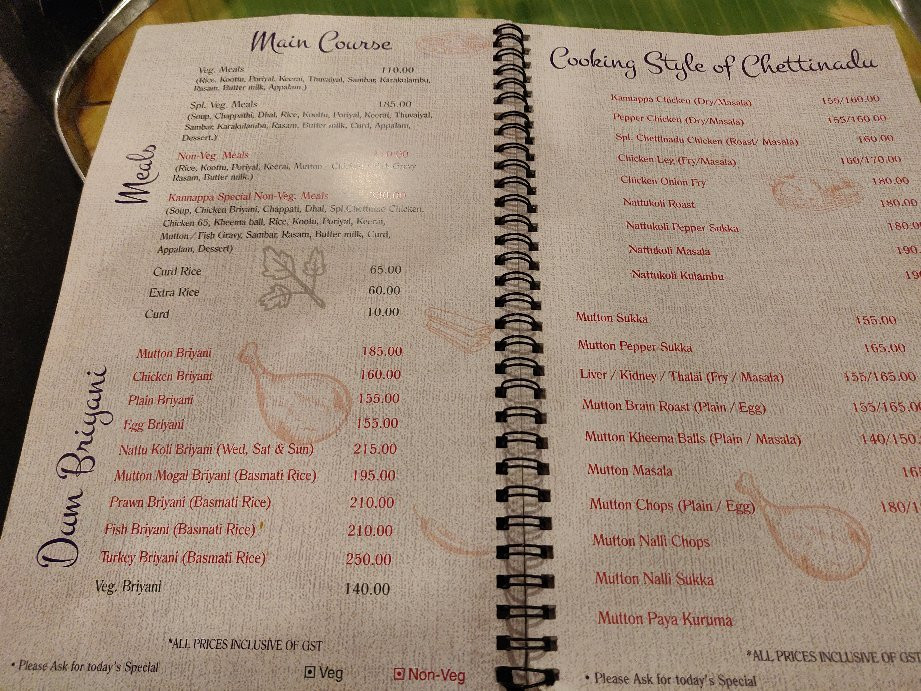 Main Course
Meals
Veg. Meals 110.00
(Rice, Kootu, Poriyal, Keerai, Thuvaiyal, Sambar, Karakulambu,
Rasam, Butter milk, Appalam.)
Spl. Veg. Meals 185.00
(Soup, Chappathi, Dhal, Rice, Kootu, Poriyal, Keerai, Thuvaiyal,
Sambar, Karakulambu, Rasam, Butter milk, Curd, Appalam,
Dessert.)
Non-Veg. Meals
(Rice, Kootu, Poriyal, Keerai, Mutton
Rasam, Butter milk.)
Kannappa Special Non-Veg. Meals
(Soup, Chicken Briyani, Chappati, Dhal, Spl.Chettinad Chicken,
Chicken 65, Kheema ball, Rice, Kootu, Poriyal, Keerai,
Mutton / Fish Gravy, Sambar, Rasam, Butter milk, Curd,
Appalam, Dessert)
Curd Rice 65.00
Extra Rice 60.00
Curd 10.00
Dum Briyani
Mutton Briyani 185.00
Chicken Briyani 160.00
Plain Briyani 155.00
Egg Briyani 155.00
Nattu Koli Briyani (Wed, Sat & Sun) 215.00
Mutton Mogal Briyani (Basmati Rice) 195.00
Prawn Briyani (Basmati Rice) 210.00
Fish Briyani (Basmati Rice) 210.00
Turkey Briyani (Basmati Rice) 250.00
Veg. Briyani 140.00
*ALL PRICES INCLUSIVE OF GST
• Please Ask for today's Special
Veg Non-Veg
Cooking Style of Chettinadu
Kannappa Chicken (Dry/Masala) 155/160.00
Pepper Chicken (Dry/Masala) 155/160.00
Spl. Chettinadu Chicken (Roast/ Masala) 160.00
Chicken Leg (Fry/Masala) 160/170.00
Chicken Onion Fry 180.00
Nattukoli Roast 180.00
Nattukoli Pepper Sukka 180.0
Nattukoli Masala 190.
Nattukoli Kulambu 19
Mutton Sukka 155.00
Mutton Pepper Sukka 165.00
Liver / Kidney / Thalai (Fry / Masala) 155/165.00
Mutton Brain Roast (Plain / Egg) 155/165.0
Mutton Kheema Balls (Plain / Masala) 140/150.
Mutton Masala 16
Mutton Chops (Plain / Egg) 180/1
Mutton Nalli Chops
Mutton Nalli Sukka
Mutton Paya Kuruma
*ALL PRICES INCLUSIVE OF GST
• Please Ask for today's Special